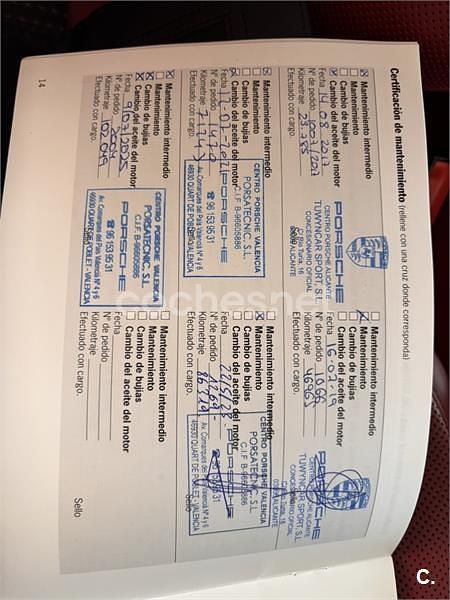 Certificación de mantenimiento (rellene con una cruz donde corresponda)
Mantenimiento intermedio
Mantenimiento
Cambio de bujías
Cambio del aceite del motor
Fecha 14-08-2017
Nº de pedido
Kilometraje 25.785
Efectuado con cargo.
PORSCHE
CENTRO PORSCHE ALICANTE
TUWYNCAR SPORT, S.L.
CONCESIONARIO OFICIAL
ALICANTE
Mantenimiento intermedio
Mantenimiento
Cambio de bujías
Cambio del aceite del motor
Fecha 16-07-19
Nº de pedido 1066
Kilometraje 46965
Efectuado con cargo.
PORSCHE
CENTRO PORSCHE ALICANTE
TUWYNCAR SPORT, S.L.
CONCESIONARIO OFICIAL
ALICANTE
Mantenimiento intermedio
Mantenimiento
Cambio de bujías
Cambio del aceite del motor
Fecha
Nº de pedido
Kilometraje 71743
Efectuado con cargo.
CENTRO PORSCHE VALENCIA
PORSATECNIC, S.L.
C.I.F. B-96605886
PORSCHE
Av. Comarques del País Valencià Nº 4 y 6
☎ 96 153 95 31
46930 QUART DE POBLET - VALENCIA
Mantenimiento intermedio
Mantenimiento
Cambio de bujías
Cambio del aceite del motor
Fecha 22/5/23
Nº de pedido 1769-
Kilometraje 86719
Efectuado con cargo.
CENTRO PORSCHE VALENCIA
PORSATECNIC, S.L.
C.I.F. B-96605886
PORSCHE
Av. Comarques del País Valencià Nº 4 y 6
46930 QUART DE POBLET - VALENCIA
Sello
Mantenimiento intermedio
Mantenimiento
Cambio de bujías
Cambio del aceite del motor
Fecha 9/07/2025
Nº de pedido
Kilometraje 102.045
Efectuado con cargo.
CENTRO PORSCHE VALENCIA
PORSATECNIC, S.L.
C.I.F. B-96605886
PORSCHE
Av. Comarques del País Valencià Nº 4 y 6
☎ 96 153 95 31
46930 QUART DE POBLET - VALENCIA
Mantenimiento intermedio
Mantenimiento
Cambio de bujías
Cambio del aceite del motor
Fecha
Nº de pedido
Kilometraje
Efectuado con cargo.
Sello
14
coches.net
C.